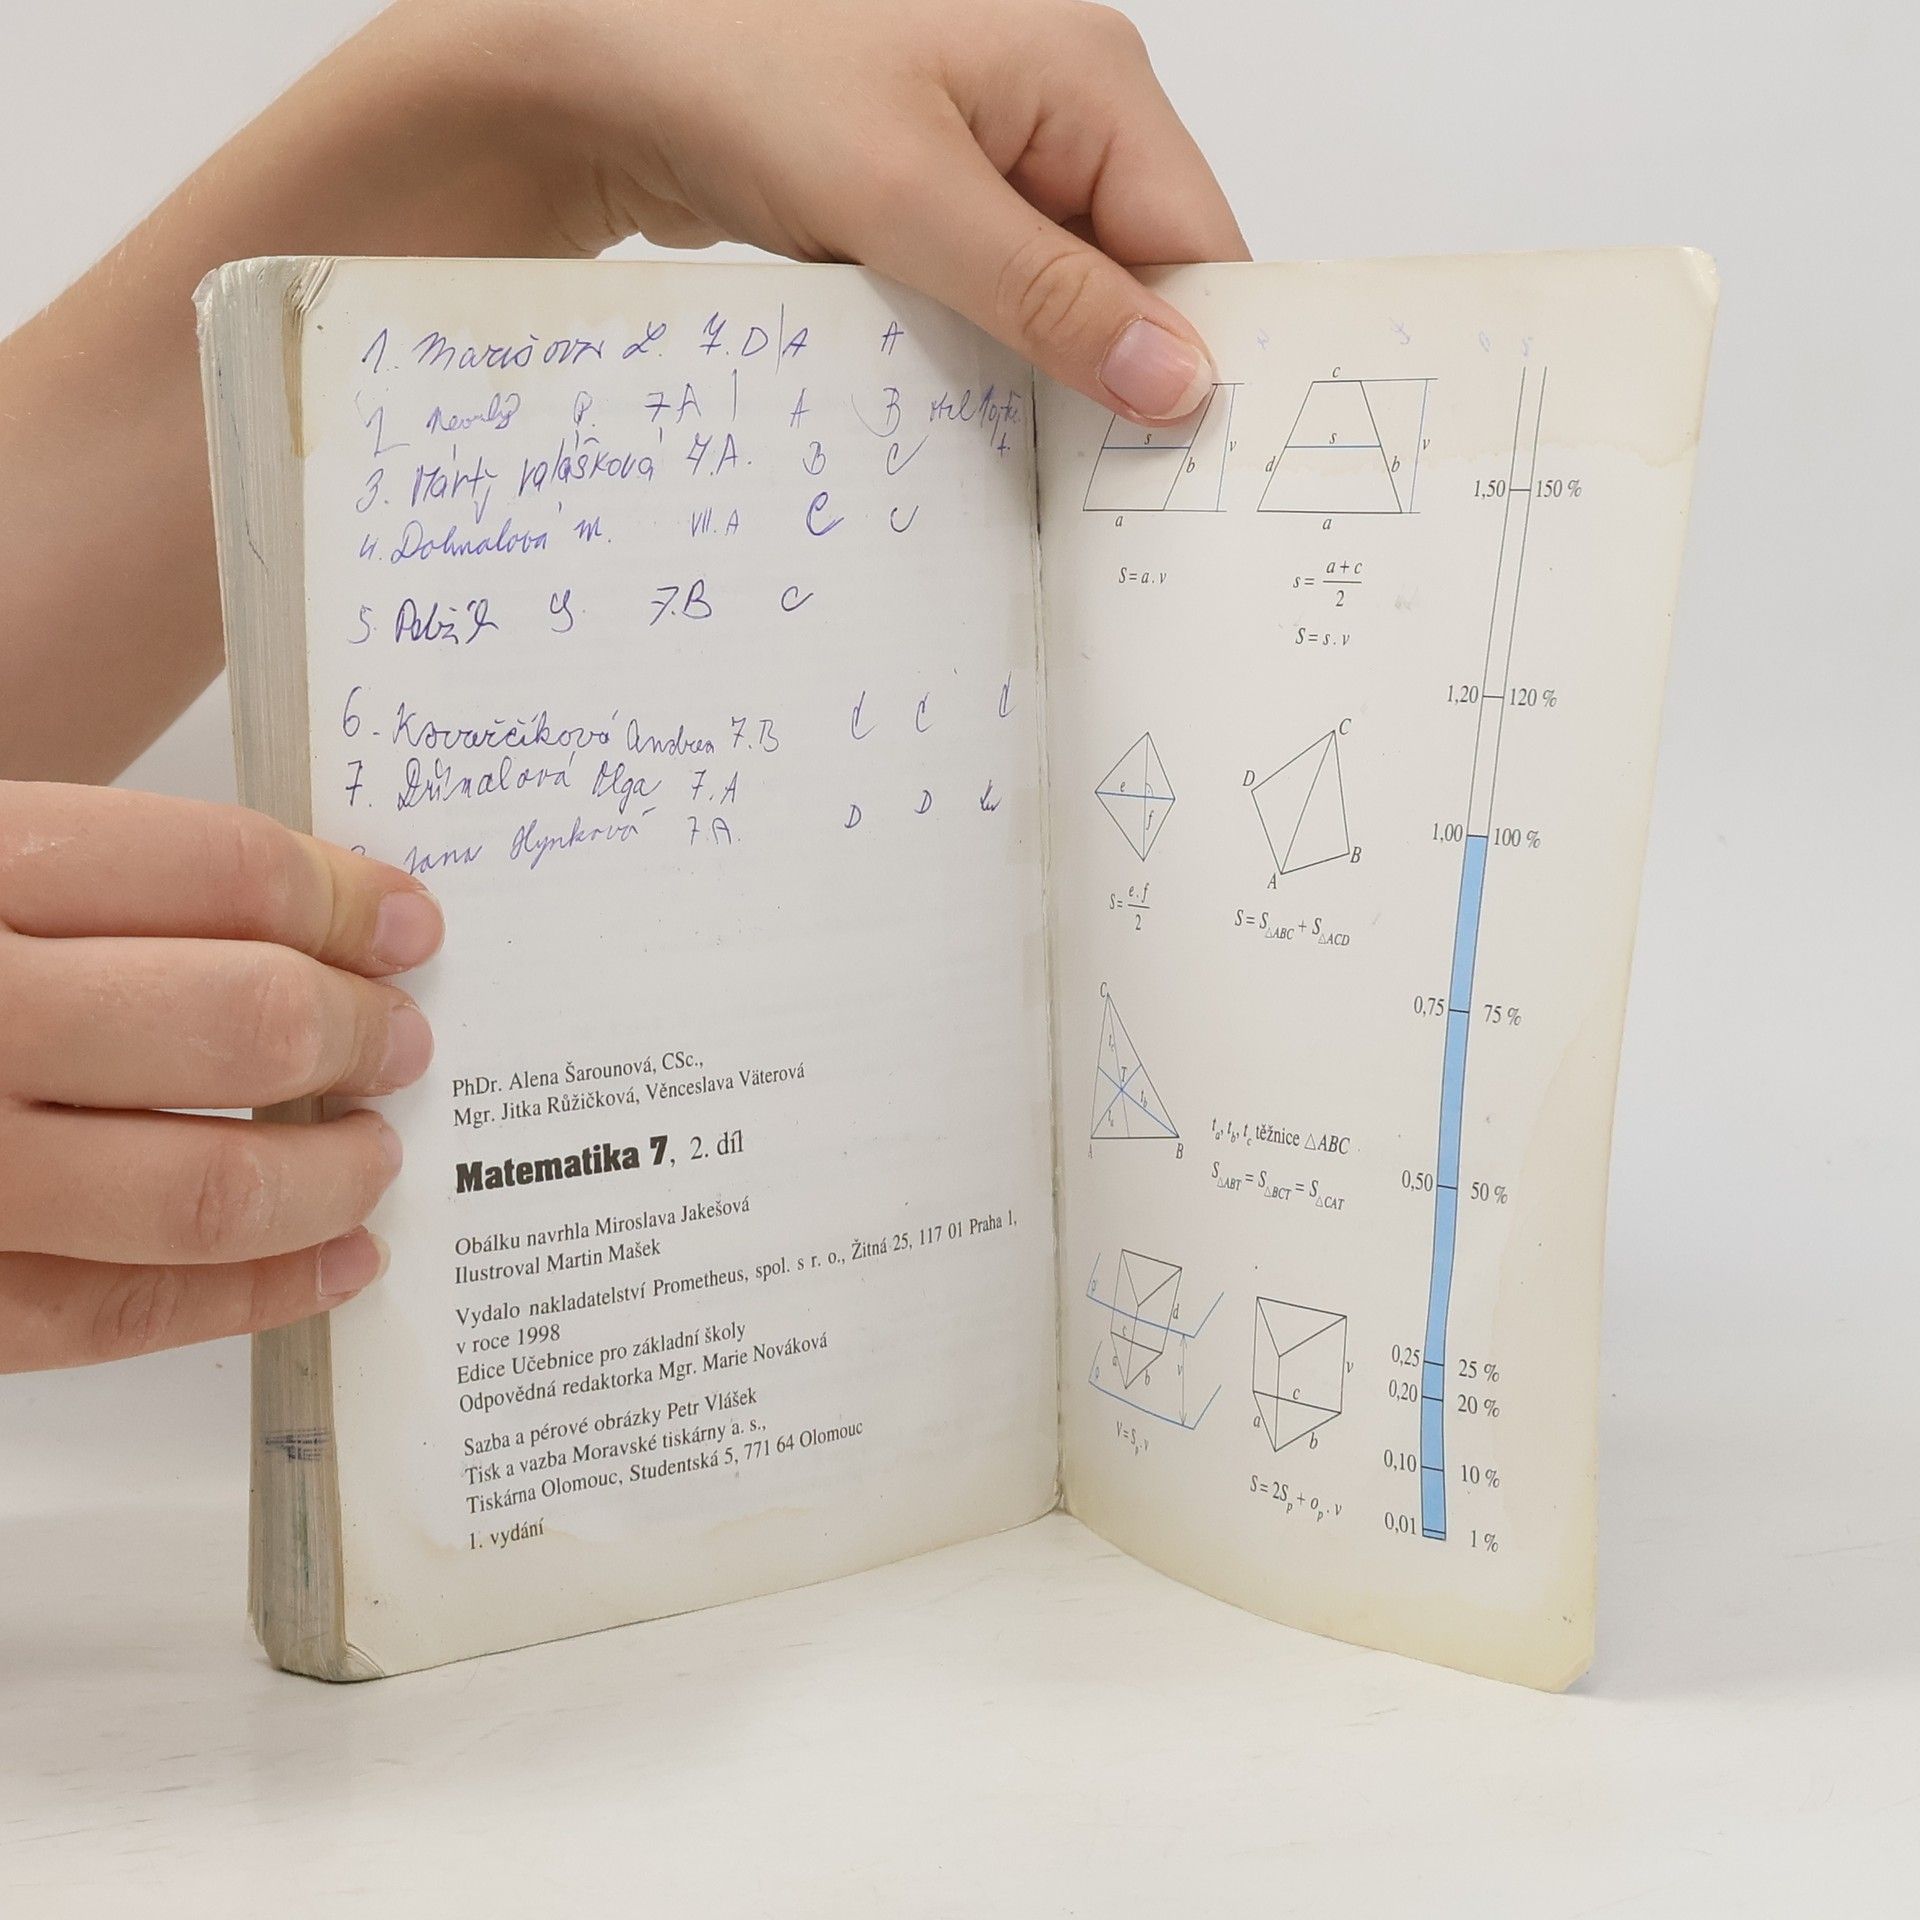 1. Marešova L. 7.D A A
P. 7A A B
3. Valášková 7.A. B C
4. Dohnalová M. VII.A C C
5. 7.B C
6. Kovarčíková Andrea 7.B C C C
7. Dřímalová Olga 7.A
Jana Hynková 7.A. D D
PhDr. Alena Šarounová, CSc.,
Mgr. Jitka Růžičková, Věnceslava Väterová
Matematika 7, 2. díl
Obálku navrhla Miroslava Jakešová
Ilustroval Martin Mašek
Vydalo nakladatelství Prometheus, spol. s r. o., Žitná 25, 117 01 Praha 1,
v roce 1998
Edice Učebnice pro základní školy
Odpovědná redaktorka Mgr. Marie Nováková
Sazba a pérové obrázky Petr Vlášek
Tisk a vazba Moravské tiskárny a. s.,
Tiskárna Olomouc, Studentská 5, 771 64 Olomouc
1. vydání
s b v a
c s d b v a
S = a . v
s = a + c / 2
S = s . v
e f
S = e . f / 2
C D B A
S = S△ABC + S△ACD
C tc T ta tb A B
ta, tb, tc těžnice △ABC
S△ABT = S△BCT = S△CAT
d c a b v
V = Sp . v
c a b v
S = 2Sp + op . v
1,50 150 %
1,20 120 %
1,00 100 %
0,75 75 %
0,50 50 %
0,25 25 %
0,20 20 %
0,10 10 %
0,01 1 %